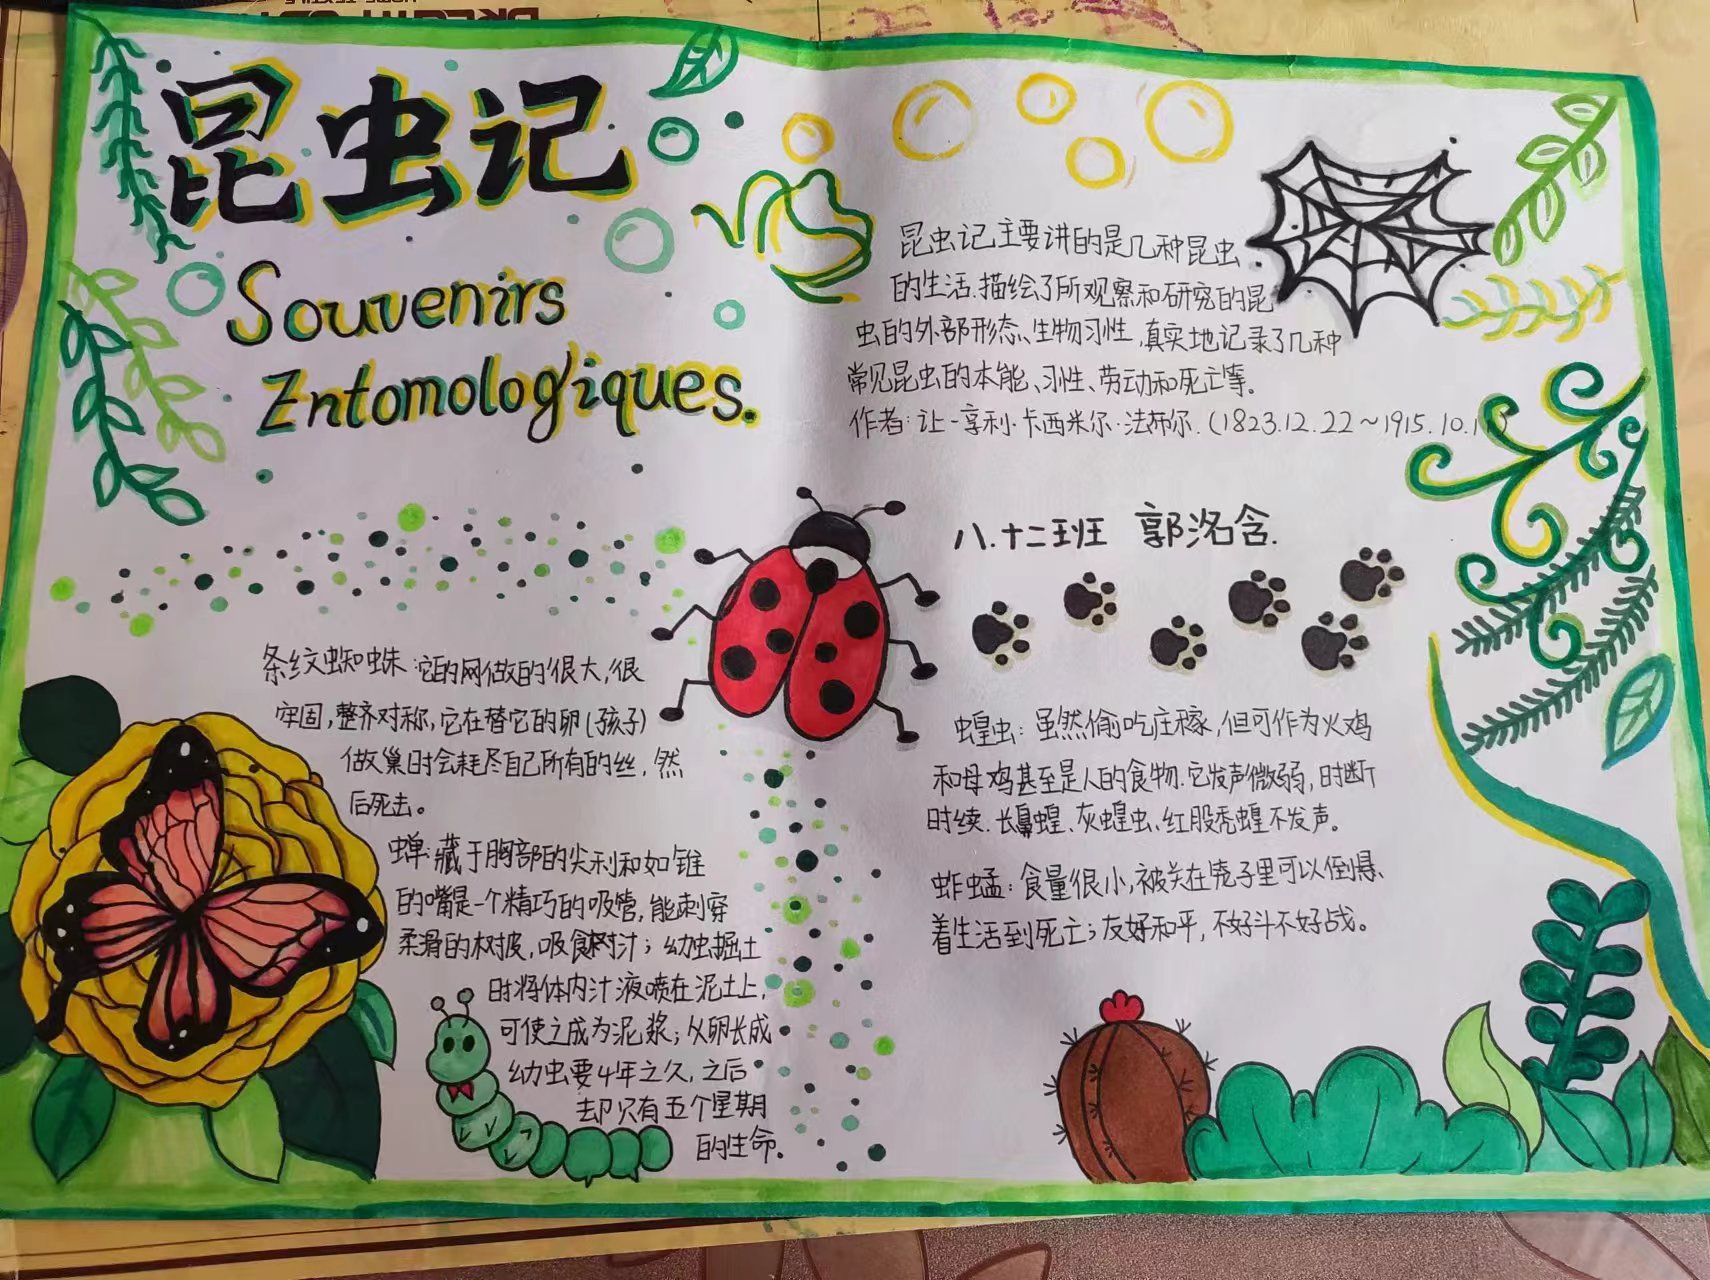 昆虫记
Souvenirs
Entomologiques.
昆虫记主要讲的是几种昆虫
的生活.描绘了所观察和研究的昆
虫的外部形态、生物习性,真实地记录了几种
常见昆虫的本能、习性、劳动和死亡等。
作者:让-亨利·卡西米尔·法布尔.(1823.12.22~1915.10.11)
八.十二班 郭洺含.
条纹蜘蛛:它的网做的很大,很
牢固,整齐对称,它在替它的卵(孩子)
做巢时会耗尽自己所有的丝,然
后死去。
蝉:藏于胸部的尖利和如锥
的嘴是一个精巧的吸管,能刺穿
柔滑的树皮,吸食树汁;幼虫掘土
时将体内汁液喷在泥土上,
可使之成为泥浆;从卵长成
幼虫要4年之久,之后
却只有五个星期
的生命。
蝗虫:虽然偷吃庄稼,但可作为火鸡
和母鸡甚至是人的食物.它发声微弱,时断
时续.长鼻蝗、灰蝗虫、红股秃蝗不发声。
蚱蜢:食量很小,被关在笼子里可以倒悬、
着生活到死亡;友好和平,不好斗不好战。